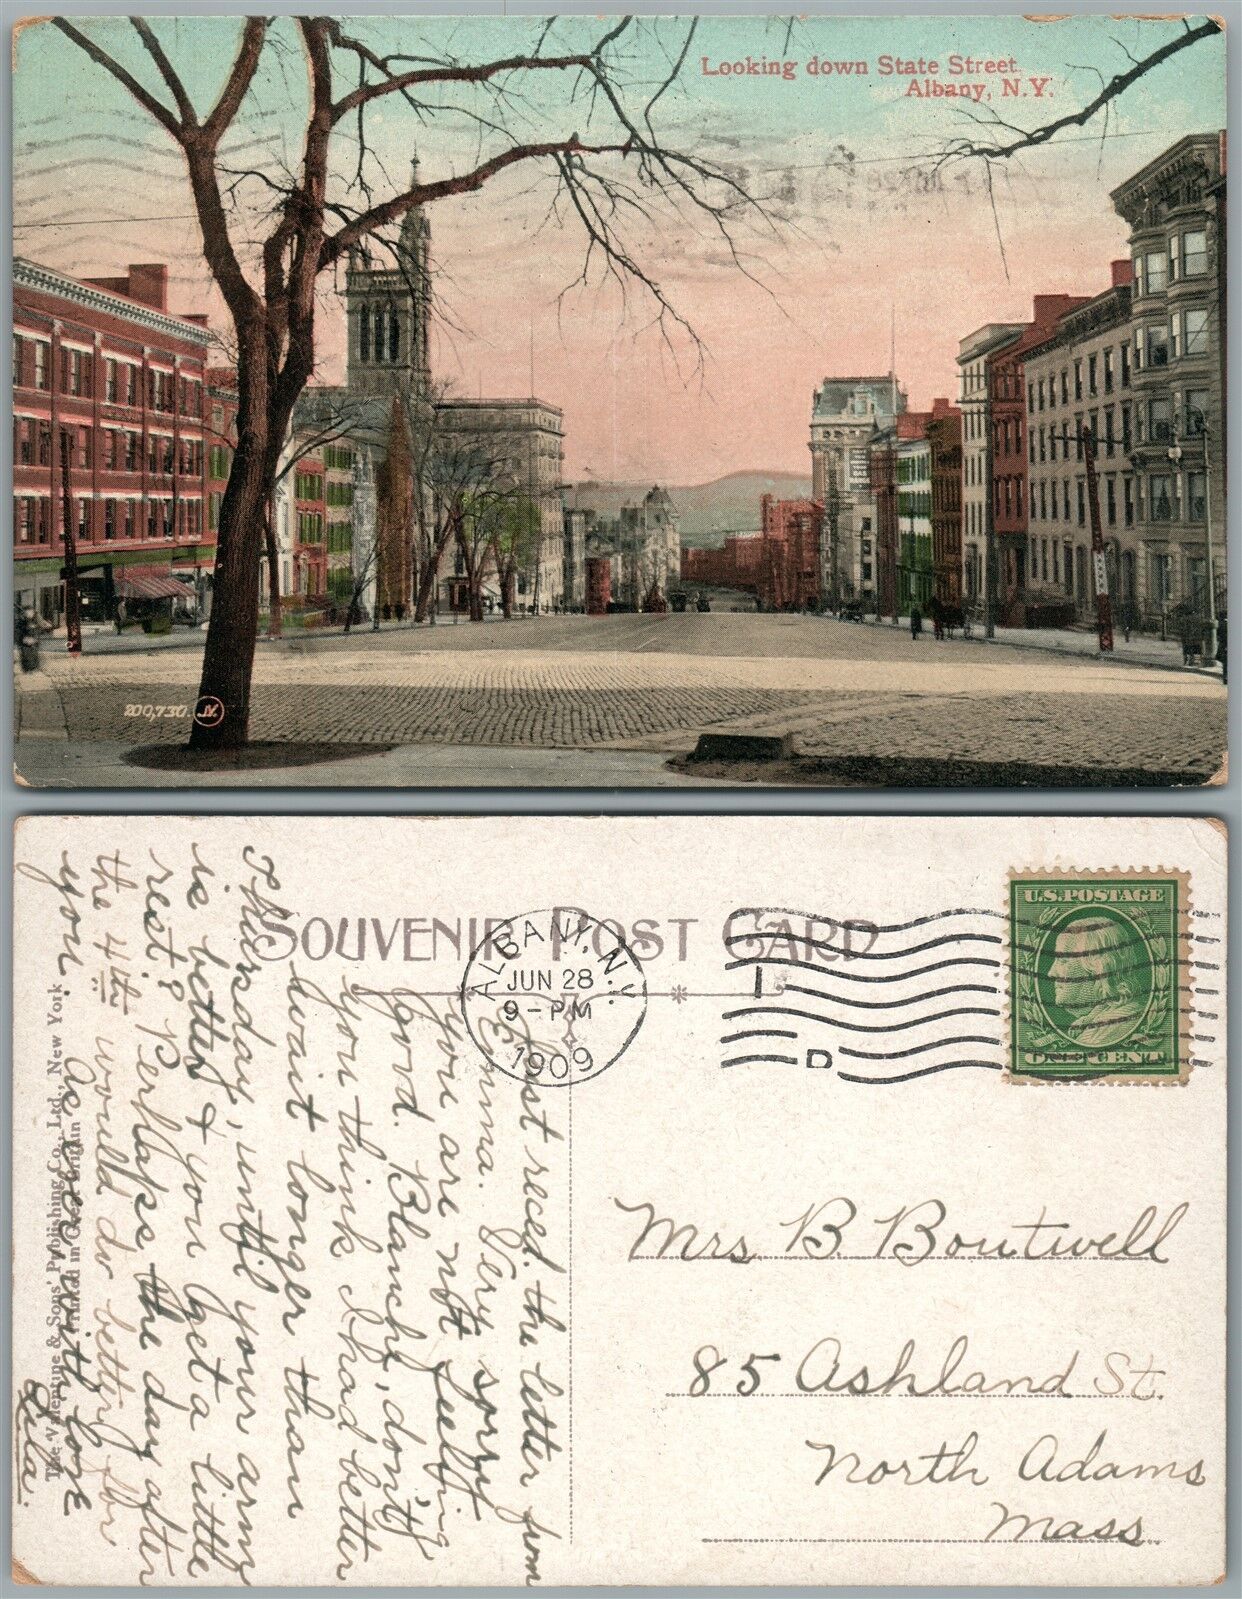 Looking down State Street
Albany, N.Y.
SAVE
YOUR
GAS
200,730. JV.
SOUVENIR POST CARD
ALBANY, N.Y.
JUN 28
9-PM
1909
D
U.S. POSTAGE
ONE CENT
Mrs B Boutwell
85 Ashland St.
North Adams
Mass.
Just reced. the letter from
Emma. Very sorry
you are not feeling
good. Blanche, don't
you think I had better
wait longer than
Thursday, until your arm
is better & you get a little
rest? Perhaps the day after
the 4th would do better for
you.
As ever with love
Lila.
The Valentine & Sons' Publishing Co., Ltd., New York
Printed in Great Britain